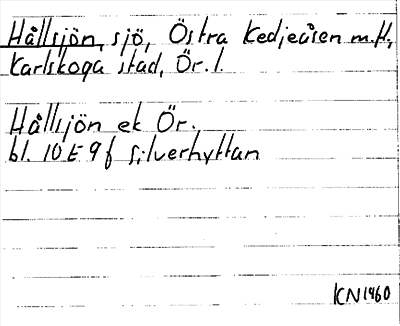 Hållsjön, sjö, Östra Kedjeåsen m.fl.,
Karlskoga stad, Ör. l.
Hållsjön ek Ör.
bl. 10 E 9 f Silverhyttan
KN 1960